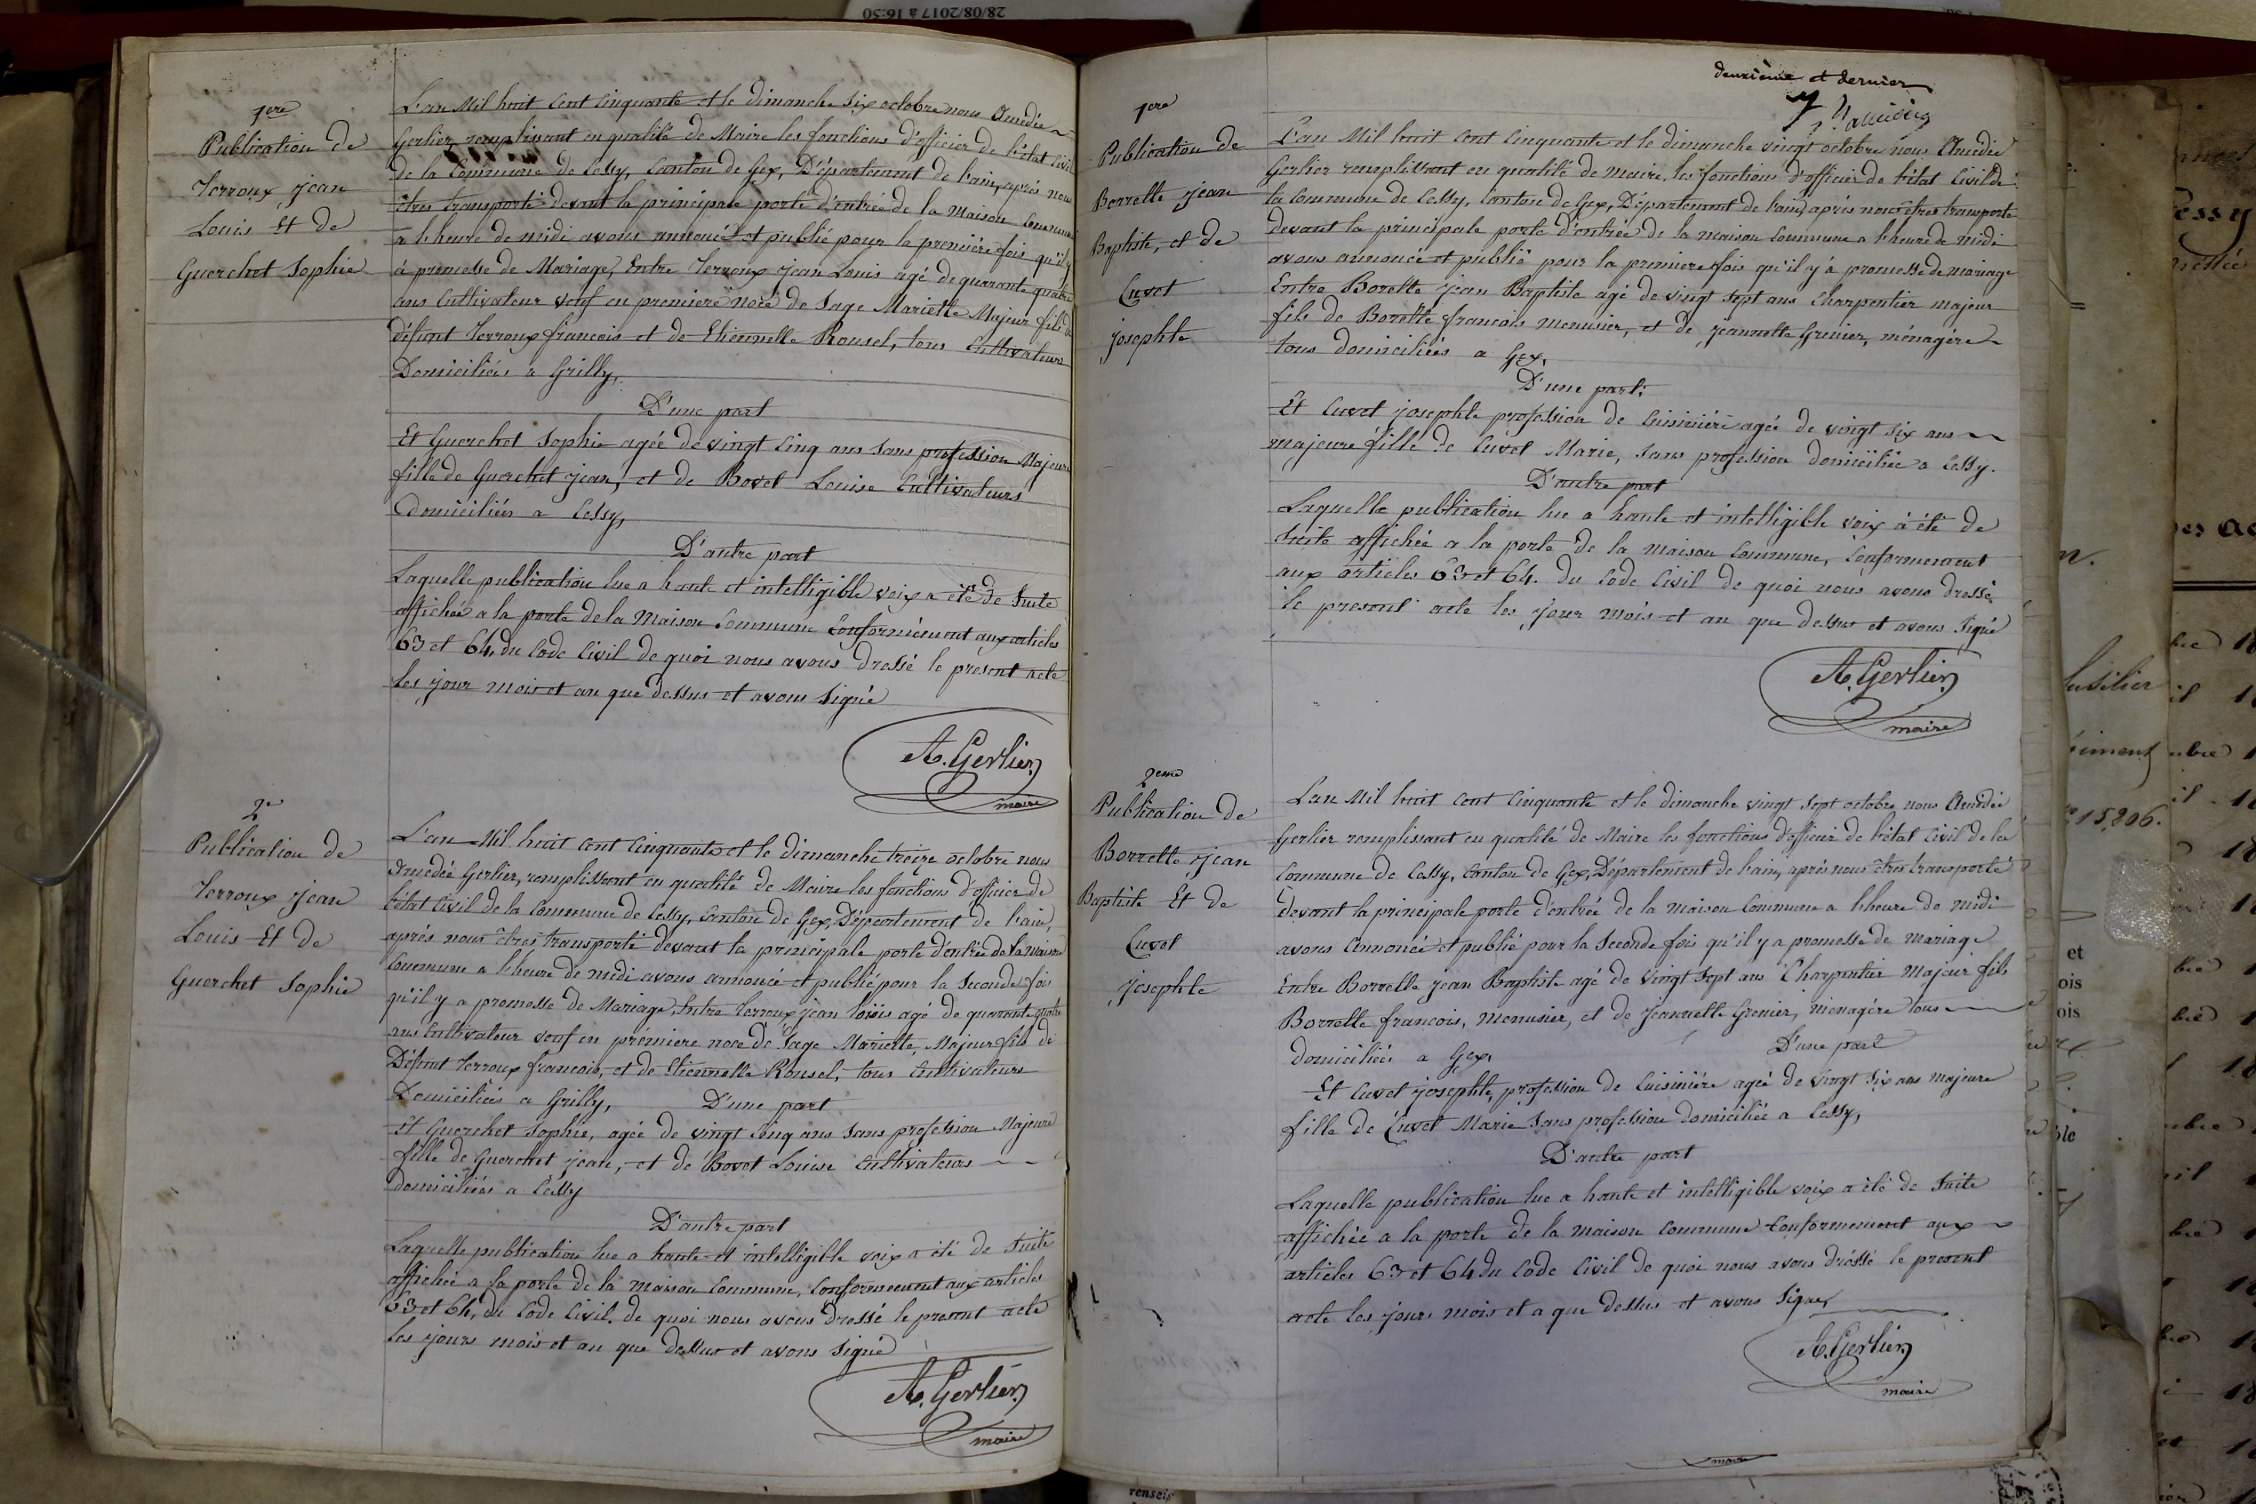 28/08/2017 à 16:50
1ere
Publication de
Terroux jean
Louis Et de
Guerchet Sophie
L'an Mil huit Cent Cinquante et le dimanche six octobre nous Amédée
Gerlier remplissant en qualité de Maire les fonctions d'officier de l'état Civil
de la Commune de Cessy, Canton de Gex, Département de l'ain, après nous
êtres transporté devant la principale porte d'entrée de la Maison Commune
a l'heure de midi avons annoncé et publié pour la première fois qu'il y
à promesse de Mariage, Entre Terroux jean Louis agé de quarante quatre
ans Cultivateur veuf en premiere noce de Sage Mariette Majeur fils de
défunt Terroux francois et de Etiennette Rousel, tous Cultivateurs
Domiciliés a Grilly,
D'une part
Et Guerchet Sophie agée de vingt Cinq ans sans profession Majeure
fille de Guerchet jean, et de Bovet Louise Cultivateurs
domiciliés a Cessy,
D'autre part
Laquelle publication lue a haute et intelligible voix a été de Suite
affichée a la porte de la Maison Commune Conformément aux articles
63 et 64 du Code Civil de quoi nous avons Dressé le present acte
les jour mois et an que dessus et avons Signé
A. Gerlier
maire
2e
Publication de
Terroux jean
Louis Et de
Guerchet Sophie
L'an Mil huit Cent Cinquante et le dimanche treize octobre nous
Amédée Gerlier, remplissant en qualité de Maire les fonctions d'officier de
l'état Civil de la Commune de Cessy, Canton de Gex, Département de l'ain,
après nous êtres transporté devant la principale porte d'entrée de la Maison
Commune a l'heure de midi avons annoncé et publié pour la Seconde fois
qu'il y a promesse de Mariage, Entre Terroux jean Louis agé de quarante quatre
ans Cultivateur veuf en prémiere noce de Sage Mariette, Majeur fils de
Défunt Terroux francois, et de Etiennette Rousel, tous Cultivateurs
Domiciliés a Grilly, D'une part
Et Guerchet Sophie, agée de vingt Cinq ans sans profession Majeure
fille de Guerchet jean, et de Bovet Louise Cultivateurs
domiciliés a Cessy
D'autre part
Laquelle publication lue a haute et intelligible voix a été de Suite
affichée a la porte de la Maison Commune, Conformément aux articles
63 et 64, du Code Civil. de quoi nous avons Dressé le present acte
les jours mois et an que dessus et avons Signé
A. Gerlier
maire
deuxième et dernier
1ere
Publication de
Borrelle jean
Baptiste, et de
Cuvet
josephte
L'an Mil huit Cent Cinquante et le dimanche vingt octobre nous Amédée
Gerlier remplissant en qualité de maire, les fonctions d'officier de l'état Civil de
la Commune de Cessy, Canton de Gex, Département de l'ain, après nous êtres transporté
devant la principale porte d'entrée de la maison Commune a l'heure de midi
avons annoncé et publié pour la premiere fois qu'il y à promesse de mariage
Entre Borelle jean Baptiste agé de vingt sept ans Charpentier majeur
fils de Borelle francois menusier, et de jeannette Grenier, ménagère
tous domiciliés a Gex,
D'une part.
Et Cuvet josephte profession de Cuisinière agée de vingt six ans
majeure fille de Cuvet Marie, sans profession domiciliée a Cessy.
D'autre part
Laquelle publication lue a haute et intelligible voix à été de
Suite affichée a la porte de la maison Commune, Conformement
aux articles 63 et 64. du Code Civil de quoi nous avons dressé
le present acte les jour mois et an que dessus et avons Signé
A. Gerlier
maire
2eme
Publication de
Borrelle jean
Baptiste Et de
Cuvet
josephte
L'an Mil huit Cent Cinquante et le dimanche vingt sept octobre nous Amédée
Gerlier remplissant en qualité de Maire les fonctions d'officier de l'état Civil de la
Commune de Cessy, Canton de Gex, Département de l'ain, après nous êtres transporté
devant la principale porte d'entrée de la maison Commune a l'heure de midi
avons annoncé et publié pour la Seconde fois qu'il y a promesse de mariage
Entre Borrelle jean Baptiste agé de vingt sept ans Charpentier majeur fils
Borrelle francois, menusier, et de jeannette Grenier, ménagère tous
domiciliés a Gex, D'une part
Et Cuvet josephte, profession de Cuisinière agée de vingt six ans majeure
fille de Cuvet Marie sans profession domiciliée a Cessy,
D'autre part
Laquelle publication lue a haute et intelligible voix a été de Suite
affichée a la porte de la maison Commune Conformement aux
articles 63 et 64 du Code Civil de quoi nous avons dréssé le present
acte les jours mois et a que dessus et avons Signé,
A. Gerlier
maire
maire
Cessy
fusilier
15,206.
et
ois
ois